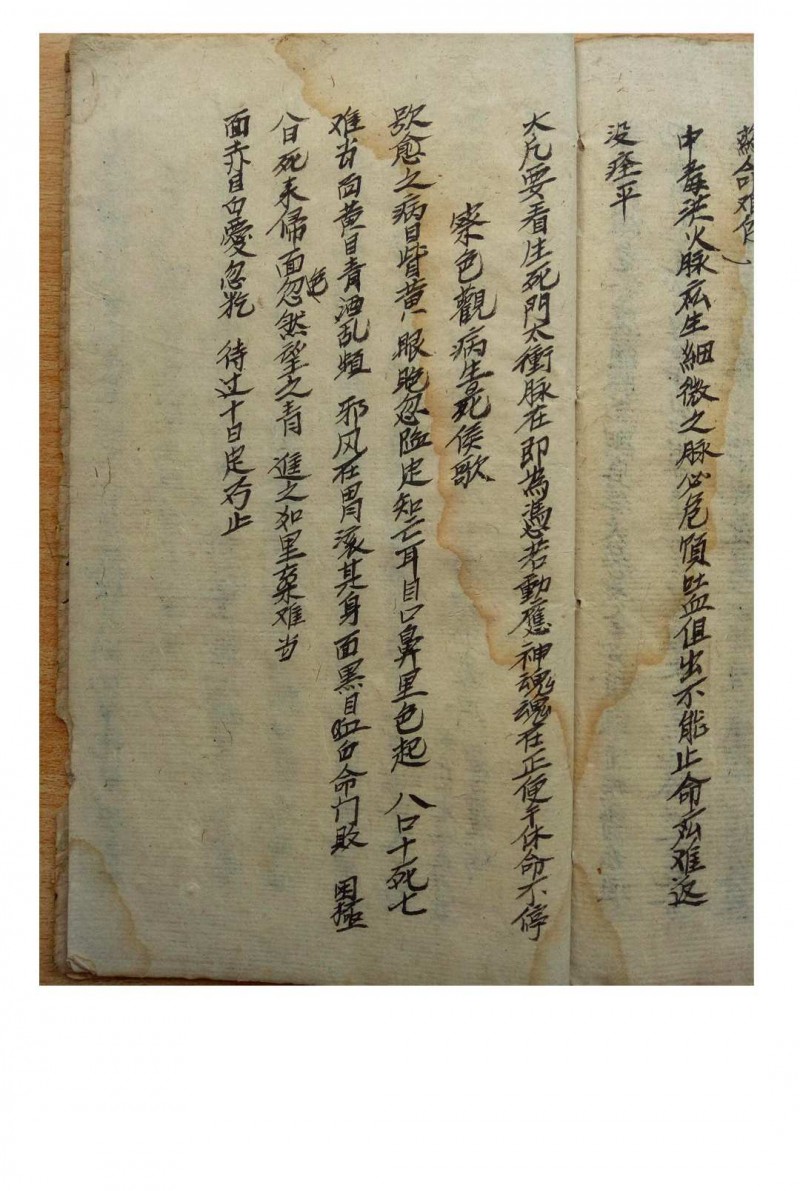 中毒洪火脉 生細微之脉必危 吐血但出不能止命 难返
没痊平
大凡要看生死門太衝脉在即為憑若動應神魂魂在正便干休命不停
察色觀病生死侯歌
欲愈之病目眥黄 眼胞忽陷定知亡耳目口鼻里色起 八口十死七
难当面黄目青酒乱頻 邪风在胃滚其身面黑目 白命门敗 困極
八日死来 面忽然望之青 進之如里 难当
色
面赤目白憂忽 待过十日定 止